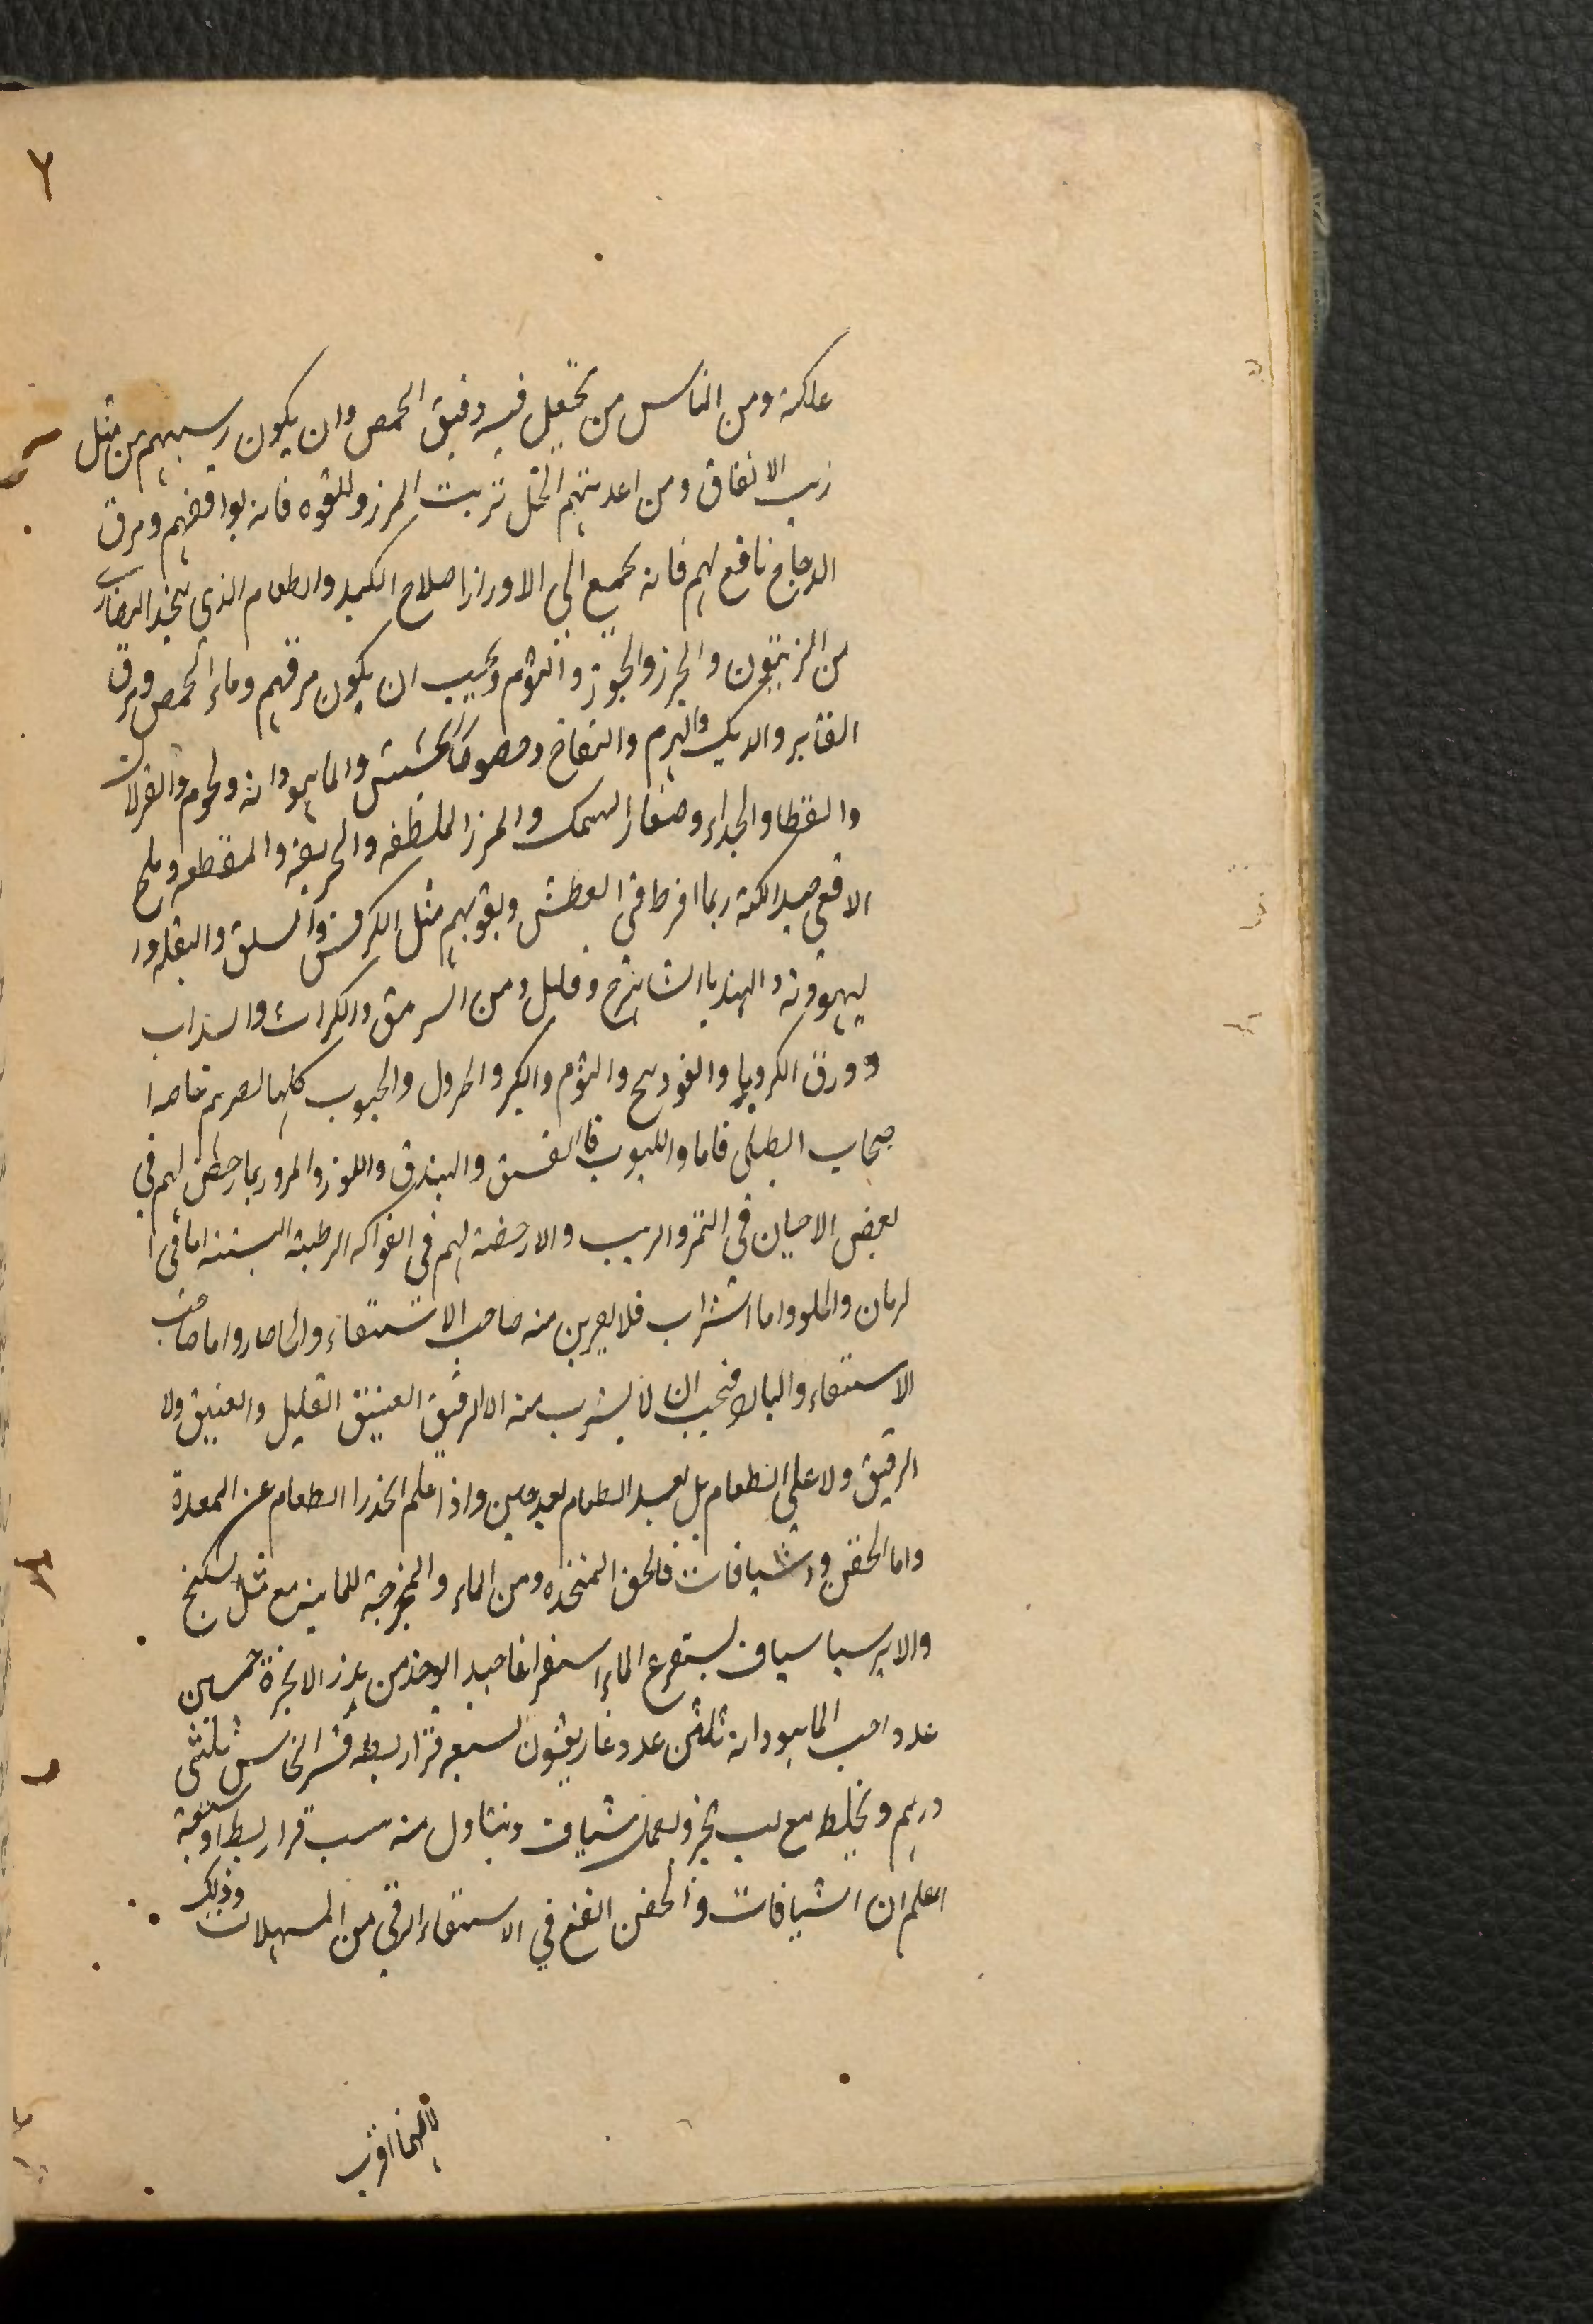 ٦
علكة ومن الناس من يجعل فيه دقيق الحمص وان يكون دسمهم من مثل
زيت الانفاق ومن اغديتهم الخل بزيت المرز وللقوه فانه يوافقهم ومرق
الدجاج نافع لهم فانه يجمع الى الاورار اصلاح الكبد والطعام الذى يتخد النصارى
من الزيتون والجزر والجوز والثوم ويجب ان يكون مرقهم وماء الحمص ومرق
القنابر والديك والهرم والتفاح وحصوصا الحشيش والماهودانه ولحوم والغزلان
والقطا والجداء وصغار السمك والمرز الملطفه والحريفه والمقطعه وملح
الافعى جيد الكنه ربما افرط فى العطش وبقولهم مثل الكرفس والسلق والبقله ور
ليهودنه والهندبا الشاهترج وقليل ومن السرمق والكراث والسداب
وورق الكرويا والفودنج والثوم والكبر والخردل والحبوب كلها لصريم خاصه ا
صحاب الطبلى فاما واللبوب فالفستق والبندق واللوز والمر وربما رخص لهم فى
بعض الاحيان فى التمر والزبيب والا رخصة لهم فى الفواكه الرطبة البتته اما فى ا
لرمان والحلو واما الشراب فلا يقربن منه صاحب الاستسقاء والحار واما صاحب
الاستسقاء والبارد فيجب ان لا يشرب منه الا الرقيق العتيق القليل والعتيق ولا
الرقيق ولا على الطعام بل بعد الطعام بعد حين واذا علم انحدار الطعام عن المعدة
واما الحقن والشيافات فالحقن المتخذه ومن الماء والمخرجة للمائية مع مثل السكبنج
والايرسا سياف يستفرغ الماء استفراغا جيدا يوخذ من بزر الانجرة خمسين
عدد احب الماهودانه ثلثين عدد غاريقون سبعه قراريط قشر النحاس ثلثى
درهم ويخلط مع لب خبز ويعمل شياف ويتناول منه ست قراريط او تسعة
اعلم ان الشيافات والحقن انفع في الاستسقاء الزقى من المسهلات وذلك
لانهما اقرب